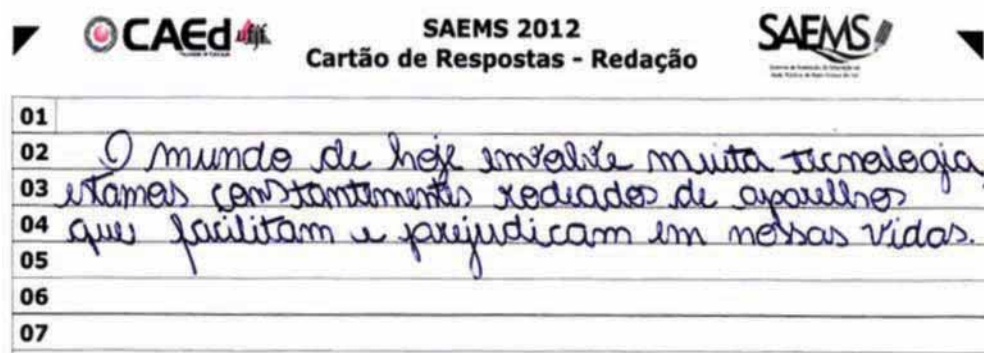 CAEd ufjf
SAEMS 2012
Cartão de Respostas - Redação
SAEMS
01
02 O mundo de hoje envolve muita tecnologia,
03 estamos constantimentes rodeados de aparelhos
04 que facilitam e prejudicam em nossas vidas.
05
06
07